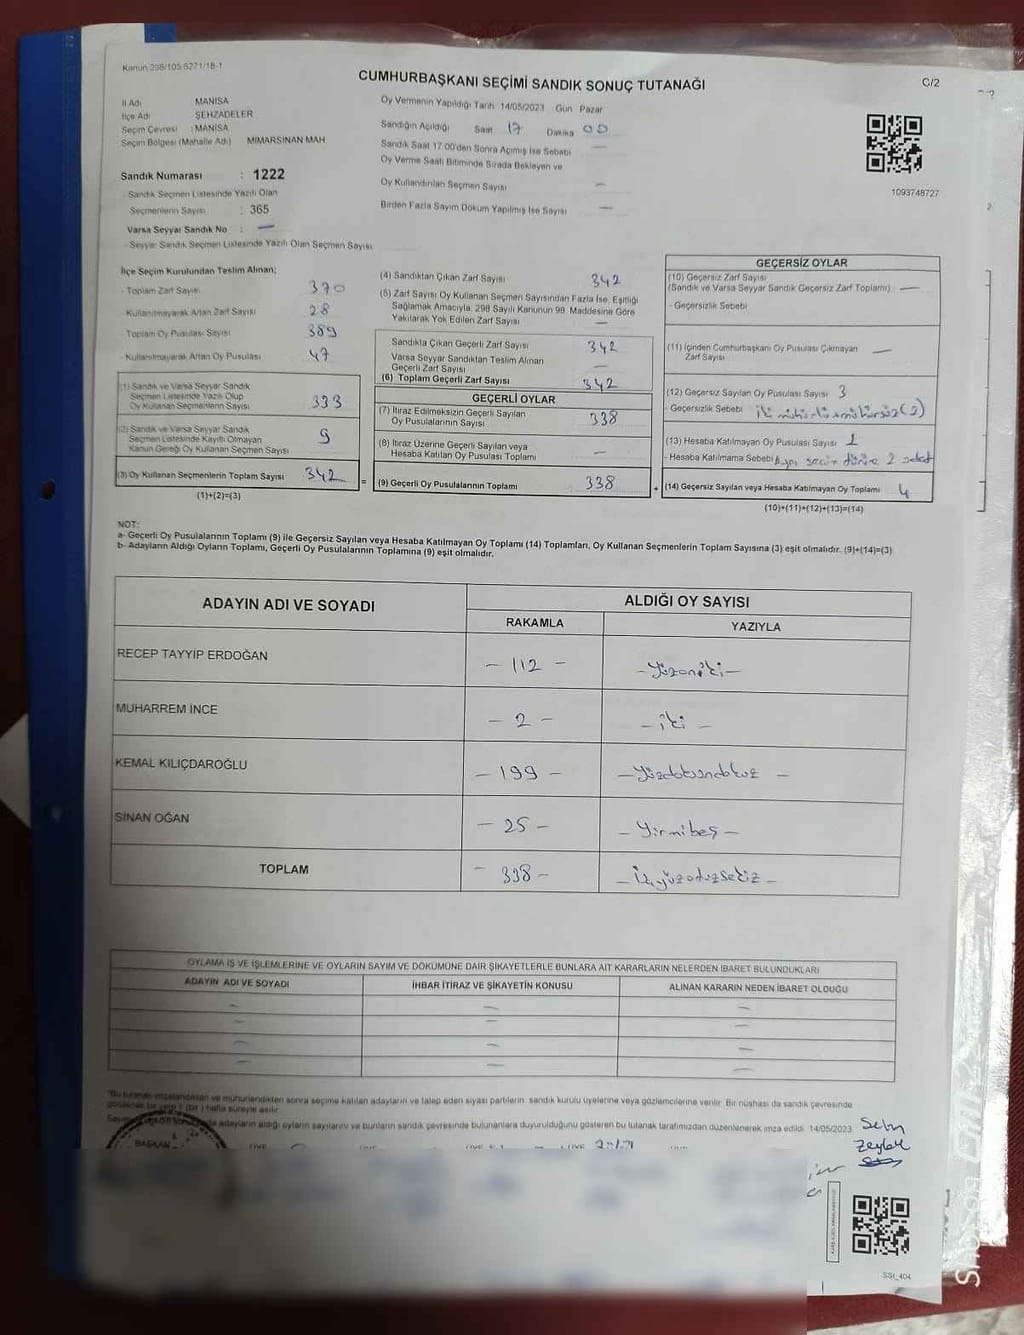 Kanun 298/105 6271/18-1
CUMHURBAŞKANI SEÇİMİ SANDIK SONUÇ TUTANAĞI
C/2
İl Adı MANİSA
İlçe Adı ŞEHZADELER
Seçim Çevresi : MANİSA
Seçim Bölgesi (Mahalle Adı) MİMARSİNAN MAH
Sandık Numarası : 1222
Sandık Seçmen Listesinde Yazılı Olan
Seçmenlerin Sayısı : 365
Varsa Seyyar Sandık No : —
- Seyyar Sandık Seçmen Listesinde Yazılı Olan Seçmen Sayısı
Oy Vermenin Yapıldığı Tarih 14/05/2023 Gün Pazar
Sandığın Açıldığı Saat 17 Dakika 00
Sandık Saat 17.00'den Sonra Açılmış İse Sebebi —
Oy Verme Saati Bitiminde Sırada Bekleyen ve
Oy Kullandırılan Seçmen Sayısı —
Birden Fazla Sayım Döküm Yapılmış İse Sayısı —
1093748727
İlçe Seçim Kurulundan Teslim Alınan;
- Toplam Zarf Sayısı 370
- Kullanılmayarak Artan Zarf Sayısı 28
- Toplam Oy Pusulası Sayısı 389
- Kullanılmayarak Artan Oy Pusulası 47
(1) Sandık ve Varsa Seyyar Sandık
Seçmen Listesinde Yazılı Olup
Oy Kullanan Seçmenlerin Sayısı 333
(2) Sandık ve Varsa Seyyar Sandık
Seçmen Listesinde Kayıtlı Olmayan
Kanun Gereği Oy Kullanan Seçmen Sayısı 9
(3) Oy Kullanan Seçmenlerin Toplam Sayısı 342
(1)+(2)=(3)
(4) Sandıktan Çıkan Zarf Sayısı 342
(5) Zarf Sayısı Oy Kullanan Seçmen Sayısından Fazla İse, Eşitliği
Sağlamak Amacıyla; 298 Sayılı Kanunun 98. Maddesine Göre
Yakılarak Yok Edilen Zarf Sayısı —
Sandıkta Çıkan Geçerli Zarf Sayısı 342
Varsa Seyyar Sandıktan Teslim Alınan
Geçerli Zarf Sayısı —
(6) Toplam Geçerli Zarf Sayısı 342
GEÇERLİ OYLAR
(7) İtiraz Edilmeksizin Geçerli Sayılan
Oy Pusulalarının Sayısı 338
(8) İtiraz Üzerine Geçerli Sayılan veya
Hesaba Katılan Oy Pusulası Toplamı —
= (9) Geçerli Oy Pusulalarının Toplamı 338 +
GEÇERSİZ OYLAR
(10) Geçersiz Zarf Sayısı
(Sandık ve Varsa Seyyar Sandık Geçersiz Zarf Toplamı) —
- Geçersizlik Sebebi
(11) İçinden Cumhurbaşkanı Oy Pusulası Çıkmayan
Zarf Sayısı —
(12) Geçersiz Sayılan Oy Pusulası Sayısı 3
- Geçersizlik Sebebi İki mühürlü + mühürsüz (2)
(13) Hesaba Katılmayan Oy Pusulası Sayısı 1
- Hesaba Katılmama Sebebi Aynı seçim türüne 2 adet
(14) Geçersiz Sayılan veya Hesaba Katılmayan Oy Toplamı 4
(10)+(11)+(12)+(13)=(14)
NOT:
a- Geçerli Oy Pusulalarının Toplamı (9) ile Geçersiz Sayılan veya Hesaba Katılmayan Oy Toplamı (14) Toplamları, Oy Kullanan Seçmenlerin Toplam Sayısına (3) eşit olmalıdır. (9)+(14)=(3)
b- Adayların Aldığı Oyların Toplamı, Geçerli Oy Pusulalarının Toplamına (9) eşit olmalıdır.
ADAYIN ADI VE SOYADI
ALDIĞI OY SAYISI
RAKAMLA YAZIYLA
RECEP TAYYİP ERDOĞAN – 112 – – Yüzoniki –
MUHARREM İNCE – 2 – – iki –
KEMAL KILIÇDAROĞLU – 199 – – Yüzdoksandokuz –
SİNAN OĞAN – 25 – – Yirmibeş –
TOPLAM – 338 – – Üçyüzotuzsekiz –
OYLAMA İŞ VE İŞLEMLERİNE VE OYLARIN SAYIM VE DÖKÜMÜNE DAİR ŞİKAYETLERLE BUNLARA AİT KARARLARIN NELERDEN İBARET BULUNDUKLARI
ADAYIN ADI VE SOYADI İHBAR İTİRAZ VE ŞİKAYETİN KONUSU ALINAN KARARIN NEDEN İBARET OLDUĞU
— — —
— — —
— — —
— — —
*Bu tutanak imzalandıktan ve mühürlendikten sonra seçime katılan adayların ve talep eden siyasi partilerin sandık kurulu üyelerine veya gözlemcilerine verilir. Bir nüshası da sandık çevresinde
görülecek bir yere 1 (bir) hafta süreyle asılır.
adayların aldığı oyların sayılarını ve bunların sandık çevresinde bulunanlara duyurulduğunu gösteren bu tutanak tarafımızdan düzenlenerek imza edildi. 14/05/2023
Selin
Zeybek
BAŞKAN
SSI_404
Shot on